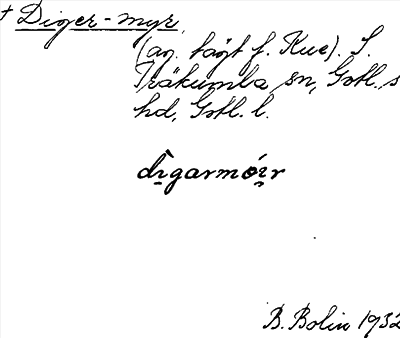 † Diger-myr,
(äg. tägt f. Kue). S.
Träkumla sn, Gotl. s
hd, Gotl. l.
dìgarmói̯r
B. Bolin 1932